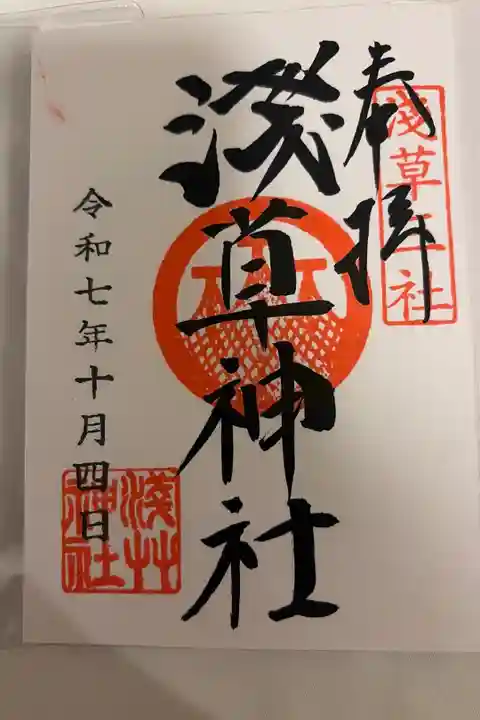 奉拝
淺草三社
淺草神社
令和七年十月四日
淺草神社